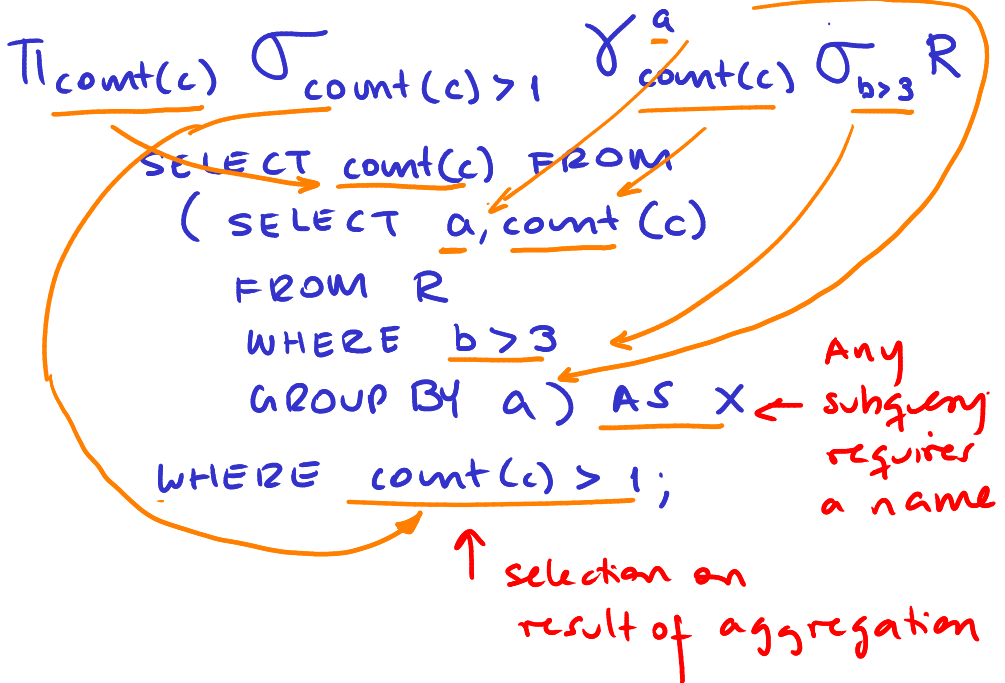 π count(c) σ count(c)>1 γ a count(c) σ b>3 R
SELECT count(c) FROM
( SELECT a, count (c)
FROM R
WHERE b > 3
GROUP BY a ) AS X
WHERE count(c) > 1 ;
Any
subquery
requires
a name
selection on
result of aggregation